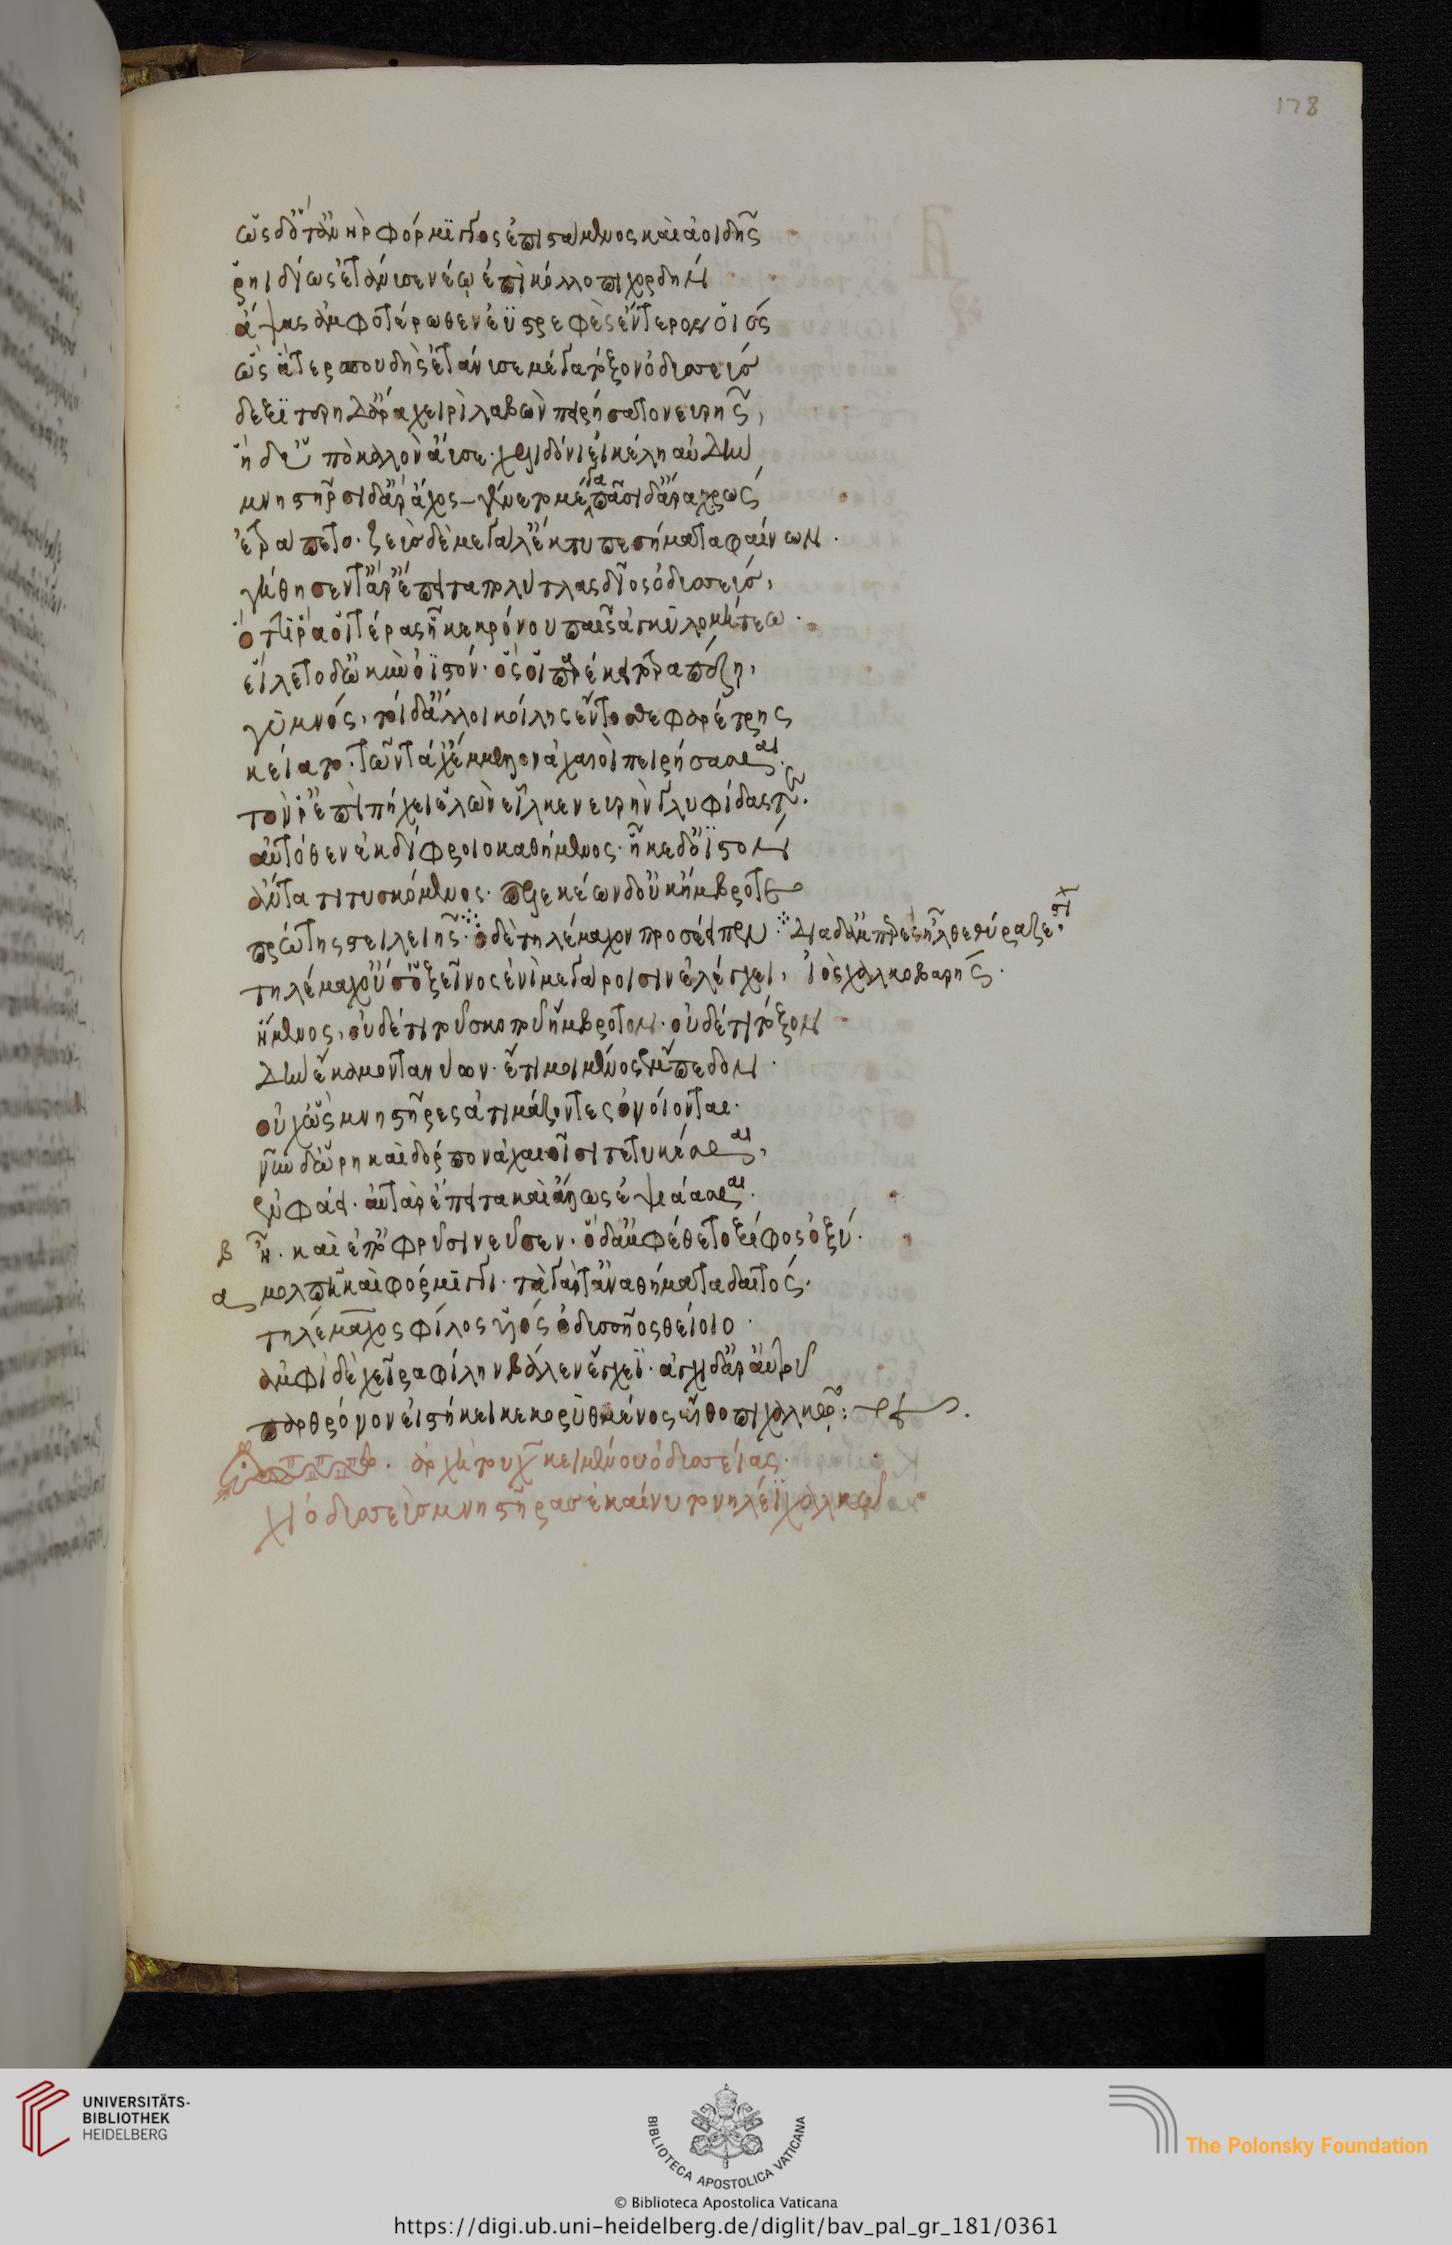 ὡς δ' ὅτ' ἀνὴρ φόρμιγγος ἐπιστάμενος καὶ ἀοιδῆς
ῥηιδίως ἐτάνυσε νέω ἐπὶ κόλλοπι χορδὴν
ἅψας ἀμφοτέρωθεν ἐϋστρεφὲς ἔντερον οἰός
ὣς ἄτερ σπουδῆς ἐτάνυσε μέγα τόξον ὀδυσσεύς
δεξιτερῆ δ' ἄρα χειρὶ λαβὼν πειρήσατο νευρῆς,
ἡ δ' ὑπὸ καλὸν ἄεισε· χελιδόνι εἰκέλη αὐδήν
μνηστῆρσι δ' ἄρ' ἄχος γένετο μέγα πᾶσι δ' ἄρα χρώς
ἐτράπετο· ζεὺς δὲ μεγάλ' ἔκτυπε σήματα φαίνων·
γήθησέν τ' ἄρ' ἔπειτα πολύτλας δῖος ὀδυσσεύς,
ὅττί ῥά οἱ τέρας ἧκε κρόνου παῖς ἀγκυλομήτεω·
εἵλετο δ' ὠκὺν ὀϊστόν· ὅς οἱ παρέκειτο τραπέζη,
γυμνός, τοὶ δ' ἄλλοι κοίλης ἔντοσθε φαρέτρης
κείατο· τῶν τάχ' ἔμελλον ἀχαιοὶ πειρήσασθαι·
τόν ῥ' ἐπὶ πήχει ἑλὼν εἷλκεν νευρὴν γλυφίδας τε·
αὐτόθεν ἐκ δίφροιο καθήμενος· ἧκε δ' ὀϊστὸν
ἄντα τιτυσκόμενος· πελεκέων δ' οὐκ ἤμβροτε
πρώτης στειλειῆς· ὁ δὲ τηλέμαχον προσέειπεν διὰ δ' ἀμπερὲς ἦλθε θύραζε·
τηλέμαχ' οὔ σ' ὁ ξεῖνος ἐνὶ μεγάροισιν ἐλέγχει, ἰὸς χαλκοβαρής·
ἥμενος, οὐδέ τι τοῦ σκοποῦ ἤμβροτον· οὐδέ τι τόξον
δὴν ἔκαμον τανύων· ἔτι μοι μένος ἔμπεδον·
οὐχ ὥς μνηστῆρες ἀτιμάζοντες ὀνόιονται·
νῦν δ' ὥρη καὶ δόρπον ἀχαιοῖσι τετυκέσθαι,
ἐν φάει· αὐτὰρ ἔπειτα καὶ ἄλλως ἑψιάασθαι·
β ἦ· καὶ ἐπ' ὀφρύσι νεῦσεν· ὁ δ' ἀμφέθετο ξίφος ὀξύ·
α μολπῆ καὶ φόρμιγγι· τὰ γάρ τ' ἀναθήματα δαιτός·
τηλέμαχος φίλος υἱὸς ὀδυσσῆος θείοιο·
ἀμφὶ δὲ χεῖρα φίλην βάλεν ἔγχεϊ· ἄγχι δ' ἄρ' αὐτοῦ
παρ θρόνον εἱστήκει κεκορυθμένος αἴθοπι χαλκῷ:
ἀρχὴ τοῦ χῖ κειμένου ὀδυσσείας·
χῖ ὀδυσσεὺς μνηστῆρας ἐκαίνυτο νηλέϊ χαλκῷ
UNIVERSITÄTS-
BIBLIOTHEK
HEIDELBERG
BIBLIOTECA APOSTOLICA VATICANA
The Polonsky Foundation
© Biblioteca Apostolica Vaticana
https://digi.ub.uni-heidelberg.de/diglit/bav_pal_gr_181/0361